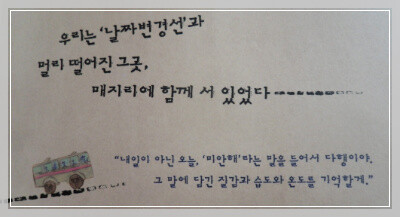 우리는 '날짜변경선'과
멀리 떨어진 그곳,
매지리에 함께 서 있었다
"내일이 아닌 오늘, '미안해'라는 말을 들어서 다행이야.
그 말에 담긴 질감과 습도와 온도를 기억할게."